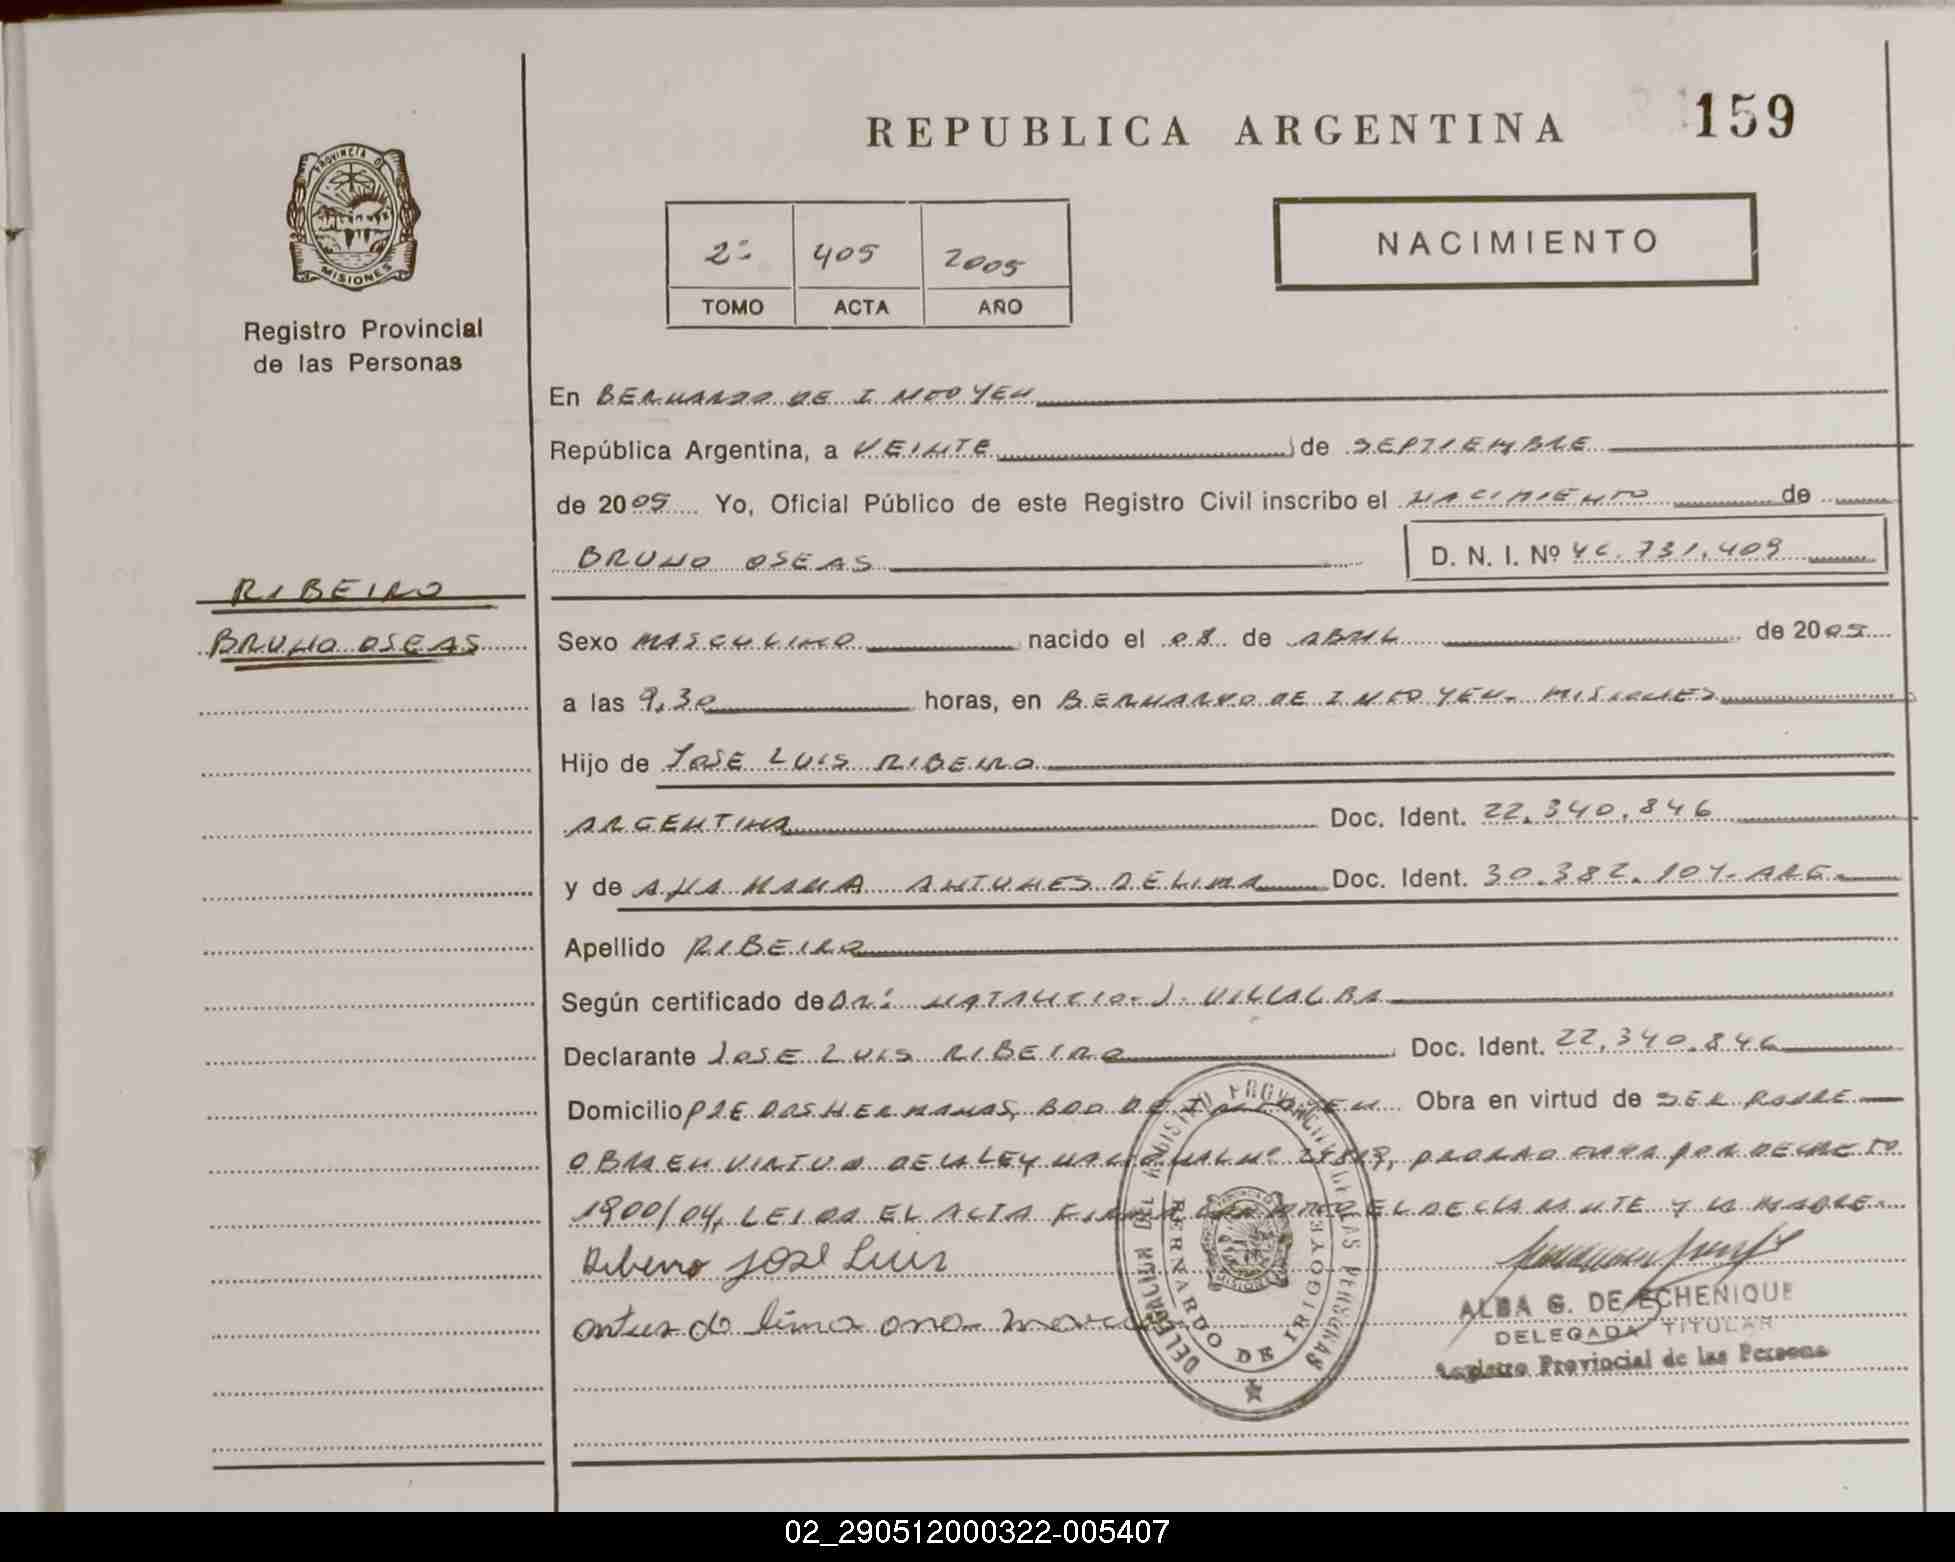 REPUBLICA ARGENTINA 159
PROVINCIA DE
MISIONES
Registro Provincial
de las Personas
2º 405 2005
TOMO ACTA AÑO
NACIMIENTO
En BERNARDO DE IRIGOYEN
República Argentina, a VEINTE de SEPTIEMBRE
de 2005 Yo, Oficial Público de este Registro Civil inscribo el NACIMIENTO de
BRUNO OSEAS D. N. I. Nº 46.731.409
RIBEIRO
BRUNO OSEAS
Sexo MASCULINO nacido el 08 de ABRIL de 2005
a las 9,30 horas, en BERNARDO DE IRIGOYEN - MISIONES
Hijo de JOSE LUIS RIBEIRO
ARGENTINA Doc. Ident. 22.340.846
y de ANA MARIA ANTUNES DE LIMA Doc. Ident. 30.382.107 - ARG.
Apellido RIBEIRO
Según certificado de DR: NATALICIO J. VILLALBA
Declarante JOSE LUIS RIBEIRO Doc. Ident. 22.340.846
Domicilio PJE DOS HERMANAS, BDO DE IRIGOYEN Obra en virtud de SER PADRE
OBRA EN VIRTUD DE LA LEY NACIONAL Nº PRORROGADA POR DECRETO
1900/04, LEIDA EL ACTA FIRMA CONMIGO EL DECLARANTE Y LA MADRE.
Ribeiro José Luis
antues do lima ana maria
DELEGACION DEL REGISTRO PROVINCIAL DE LAS PERSONAS
BERNARDO DE IRIGOYEN
MISIONES
ALBA G. DE ECHENIQUE
DELEGADA TITULAR
Registro Provincial de las Persona
02_290512000322-005407